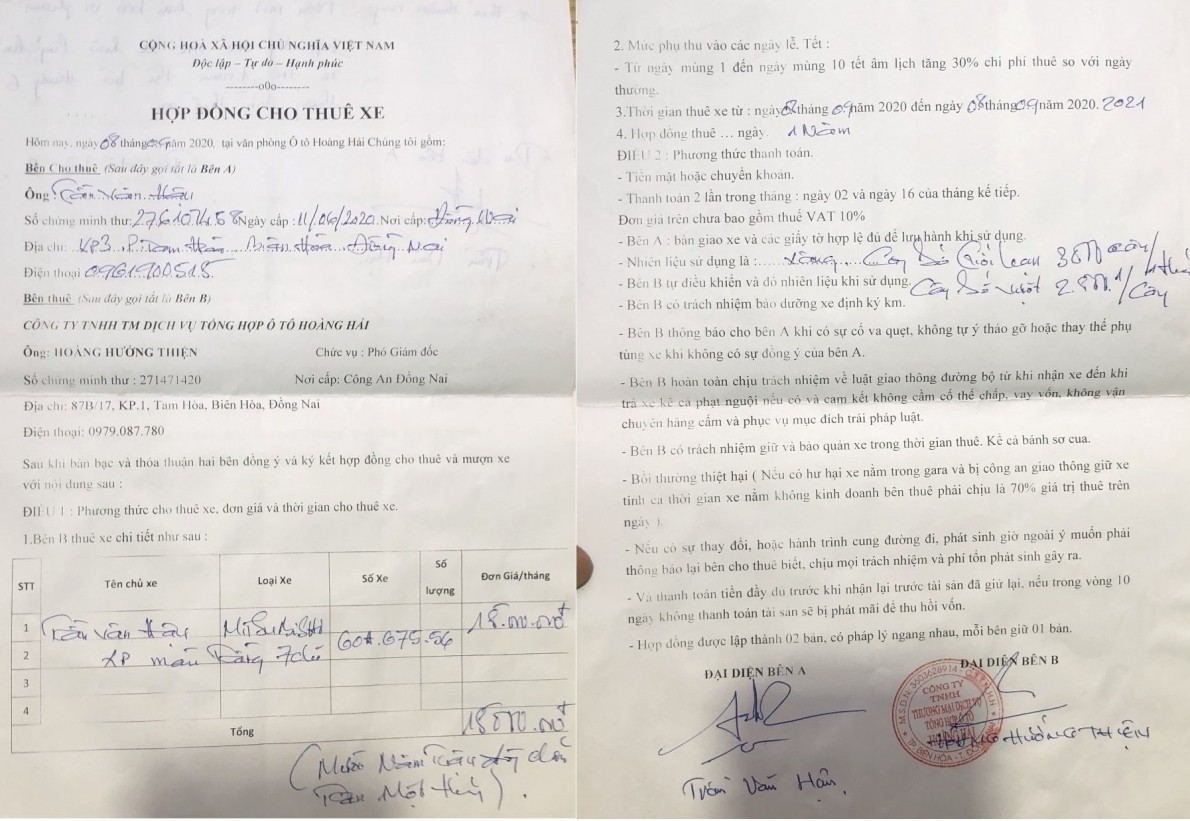 CỘNG HOÀ XÃ HỘI CHỦ NGHĨA VIỆT NAM
Độc lập – Tự do – Hạnh phúc
--------o0o--------
HỢP ĐỒNG CHO THUÊ XE
Hôm nay, ngày 08 tháng 09 năm 2020, tại văn phòng Ô tô Hoàng Hải Chúng tôi gồm:
Bên Cho thuê (Sau đây gọi tắt là Bên A)
Ông: Trần Văn Hậu
Số chứng minh thư: 276107458 Ngày cấp: 11/06/2020. Nơi cấp: Đồng Nai
Địa chỉ: KP3 P. Tam Hòa Biên Hòa Đồng Nai
Điện thoại 0961900515
Bên thuê (Sau đây gọi tắt là Bên B)
CÔNG TY TNHH TM DỊCH VỤ TỔNG HỢP Ô TÔ HOÀNG HẢI
Ông: HOÀNG HƯỞNG THIỆN Chức vụ : Phó Giám đốc
Số chứng minh thư : 271471420 Nơi cấp: Công An Đồng Nai
Địa chỉ: 87B/17, KP.1, Tam Hòa, Biên Hòa, Đồng Nai
Điện thoại: 0979.087.780
Sau khi bàn bạc và thỏa thuận hai bên đồng ý và ký kết hợp đồng cho thuê và mượn xe
với nội dung sau :
ĐIỀU 1 : Phương thức cho thuê xe, đơn giá và thời gian cho thuê xe.
1.Bên B thuê xe chi tiết như sau :
STT Tên chủ xe Loại Xe Số Xe Số lượng Đơn Giá/tháng
1 Trần Văn Hậu Mitsubishi 60A.675.56 15.000.000đ
2 XP màu trắng 7 chỗ
3
4
Tổng 15000.000đ
(Mười Năm Triệu đồng chẵn
Trên Một tháng).
2. Mức phụ thu vào các ngày lễ, Tết :
- Từ ngày mùng 1 đến ngày mùng 10 tết âm lịch tăng 30% chi phí thuê so với ngày
thường.
3.Thời gian thuê xe từ : ngày 08 tháng 09 năm 2020 đến ngày 08 tháng 09 năm 2020. 2021
4. Hợp đồng thuê ... ngày. 1 Năm
ĐIỀU 2 : Phương thức thanh toán.
- Tiền mặt hoặc chuyển khoản.
- Thanh toán 2 lần trong tháng : ngày 02 và ngày 16 của tháng kế tiếp.
Đơn giá trên chưa bao gồm thuế VAT 10%
- Bên A : bàn giao xe và các giấy tờ hợp lệ đủ để lưu hành khi sử dụng.
- Nhiên liệu sử dụng là :..... xăng.... Cây Số Giới hạn 3000 cây/
- Bên B tự điều khiển và đổ nhiên liệu khi sử dụng. Cây Số vượt /Cây
- Bên B có trách nhiệm bảo dưỡng xe định kỳ km.
- Bên B thông báo cho bên A khi có sự cố va quẹt, không tự ý tháo gỡ hoặc thay thế phụ
tùng xe khi không có sự đồng ý của bên A.
- Bên B hoàn toàn chịu trách nhiệm về luật giao thông đường bộ từ khi nhận xe đến khi
trả xe kể cả phạt nguội nếu có và cam kết không cầm cố thế chấp, vay vốn, không vận
chuyển hàng cấm và phục vụ mục đích trái pháp luật.
- Bên B có trách nhiệm giữ và bảo quản xe trong thời gian thuê. Kể cả bánh sơ cua.
- Bồi thường thiệt hại ( Nếu có hư hại xe nằm trong gara và bị công an giao thông giữ xe
tính cả thời gian xe nằm không kinh doanh bên thuê phải chịu là 70% giá trị thuê trên
ngày ).
- Nếu có sự thay đổi, hoặc hành trình cung đường đi, phát sinh giờ ngoài ý muốn phải
thông báo lại bên cho thuê biết, chịu mọi trách nhiệm và phí tổn phát sinh gây ra.
- Và thanh toán tiền đầy đủ trước khi nhận lại trước tài sản đã giữ lại, nếu trong vòng 10
ngày không thanh toán tài sản sẽ bị phát mãi để thu hồi vốn.
- Hợp đồng được lập thành 02 bản, có pháp lý ngang nhau, mỗi bên giữ 01 bản.
ĐẠI DIỆN BÊN A ĐẠI DIỆN BÊN B
M.S.D.N: 3603628914
CÔNG TY
TNHH
THƯƠNG MẠI DỊCH VỤ
TỔNG HỢP Ô TÔ
HOÀNG HẢI
TP. BIÊN HÒA - T. ĐỒNG NAI
HOÀNG HƯỞNG THIỆN
Trần Văn Hậu